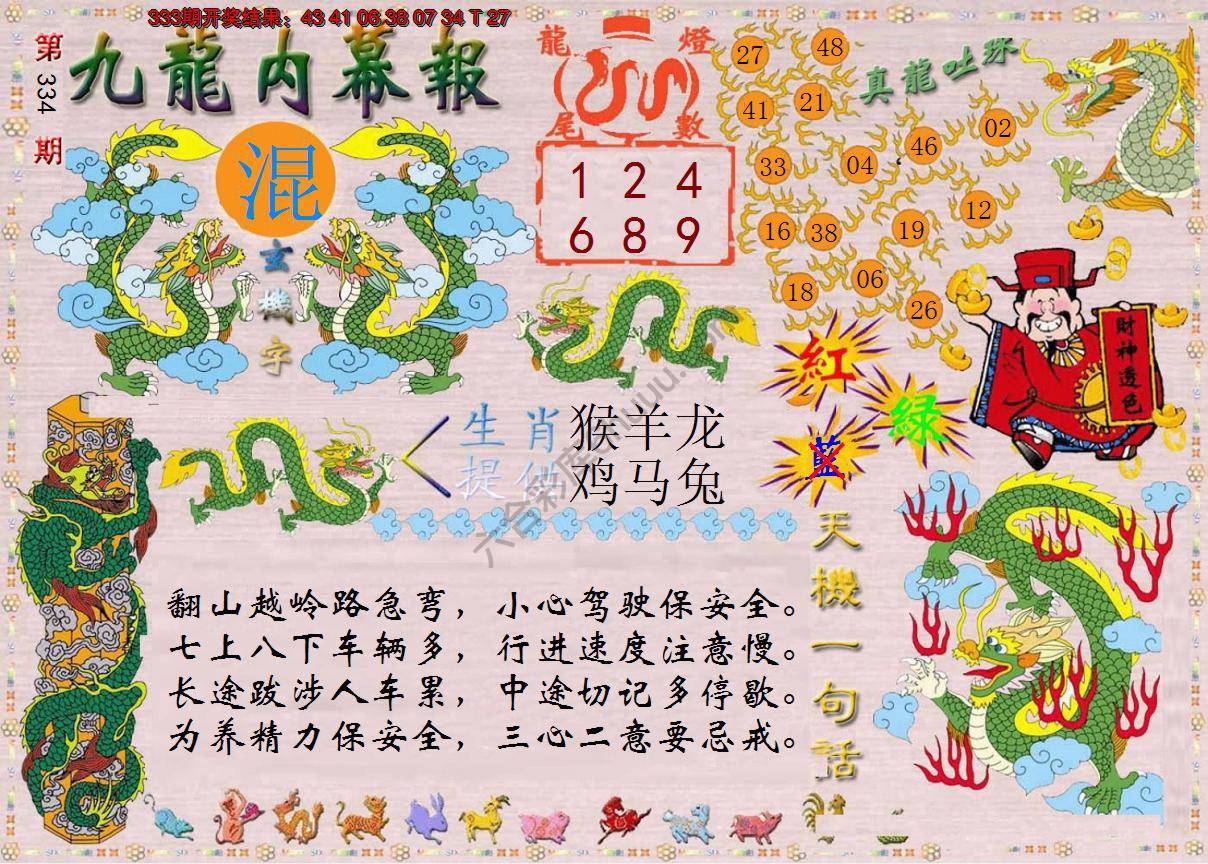 333期开奖结果：43 41 06 38 07 34 T 27
第334期
九龍内幕報
混
玄機字
龍燈
尾數
1 2 4
6 8 9
真龍吐珠
27 48
41 21
33 04 46 02
16 38 19 12
18 06 26
財神透色
紅
綠
藍
生肖 猴羊龙
提供 鸡马兔
天機一句話
翻山越岭路急弯，小心驾驶保安全。
七上八下车辆多，行进速度注意慢。
长途跋涉人车累，中途切记多停歇。
为养精力保安全，三心二意要忌戒。